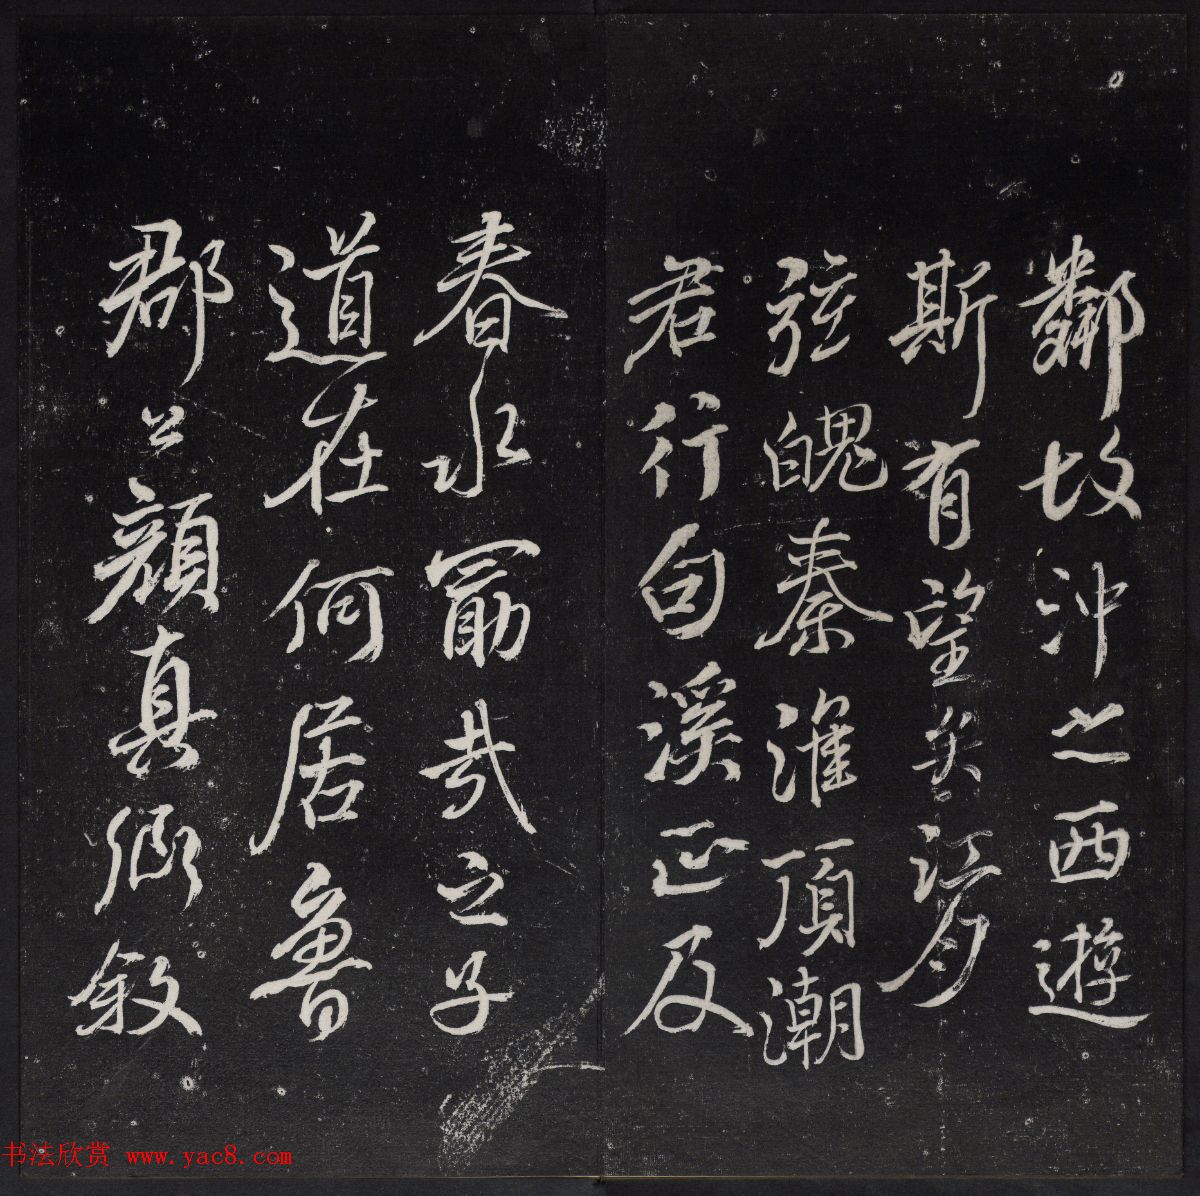 鄰故沖之西遊
斯有望矣江月
弦魄秦淮頂潮
君行句溪正及
春水勖哉之子
道在何居魯
郡公顏真卿敘
书法欣赏 www.yac8.com